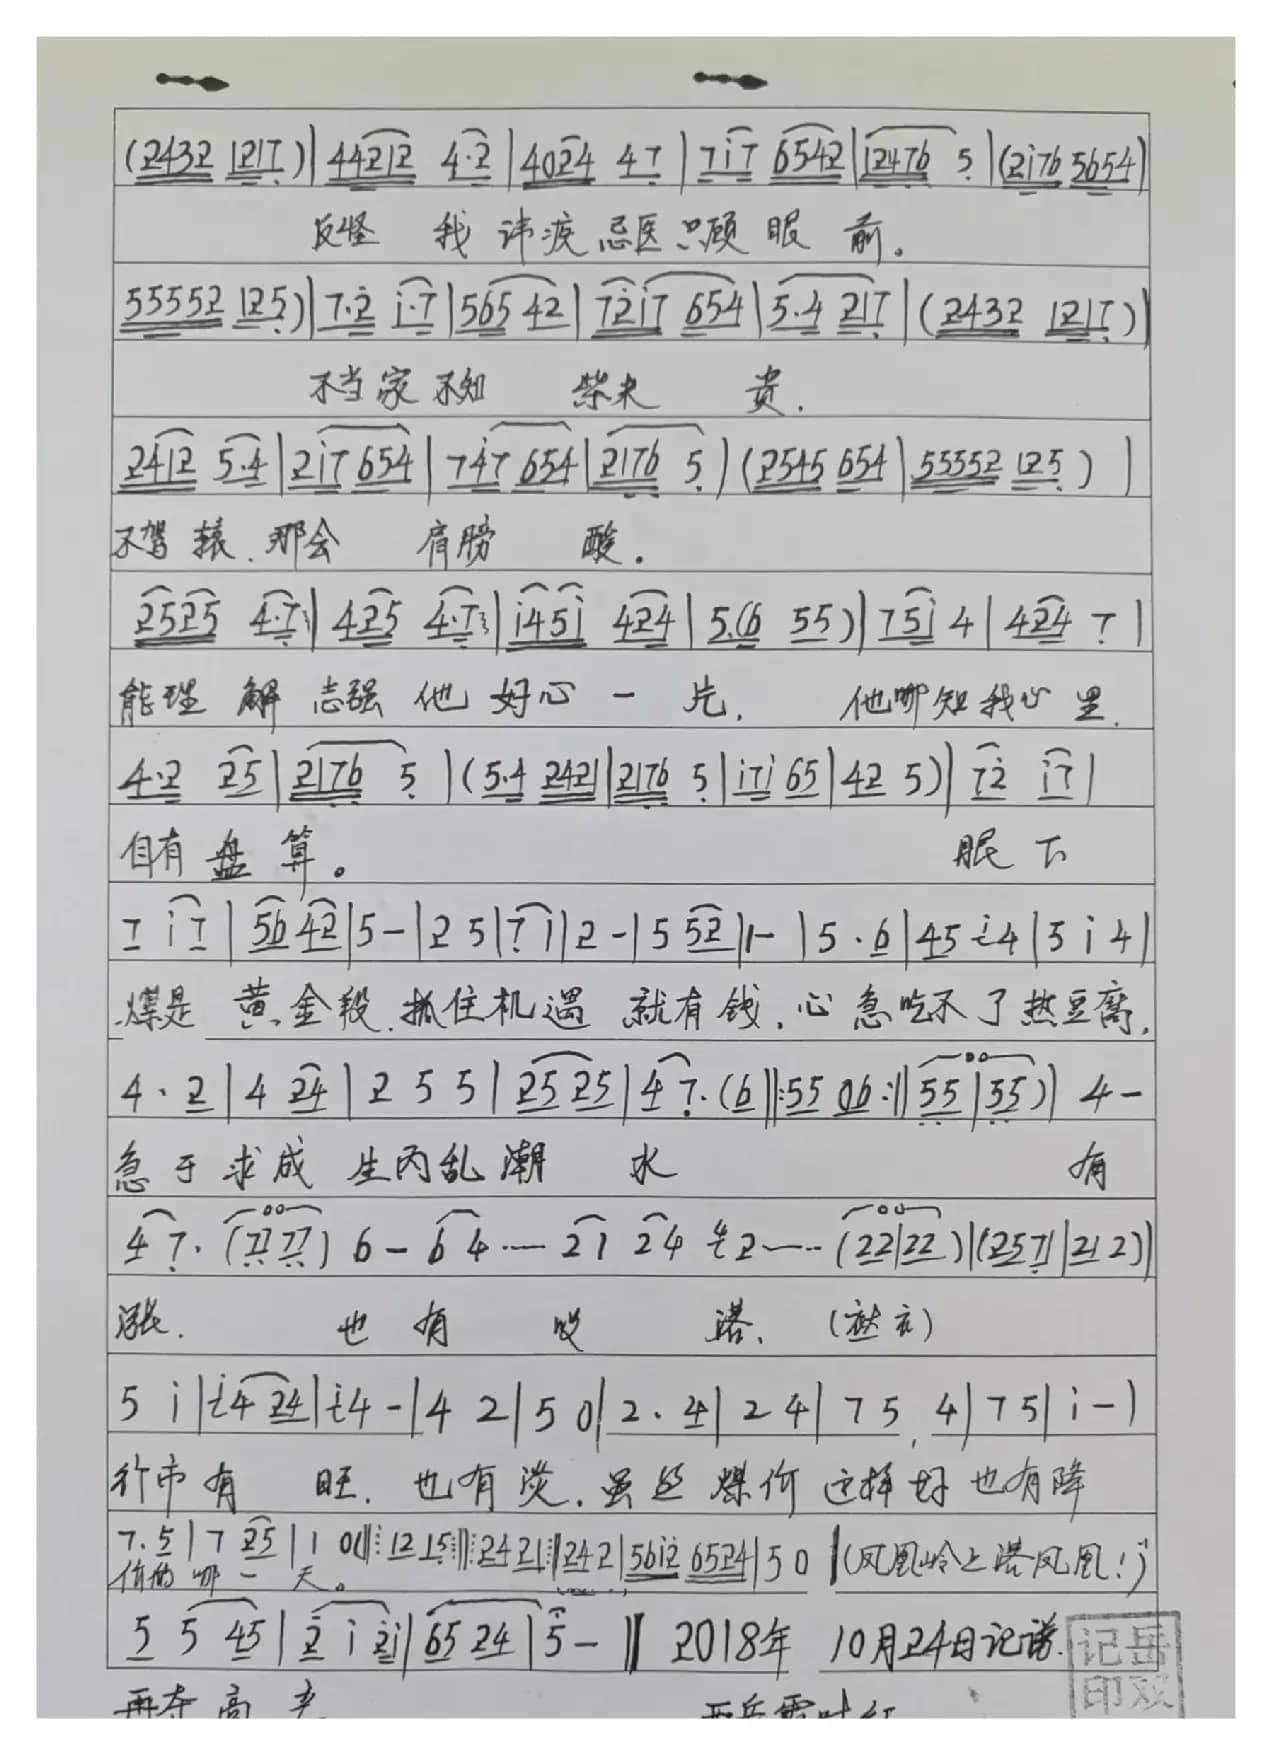 (2432 1217)|44212 4·2|4024 47|7i7 6542|12476 5|(2i76 5654)
反怪 我讳疾忌医只顾眼前。
55552 125)|7·2 i·7|565 42|72i7 654|5·4 217|(2432 1217)|
不当家不知 柴米 贵.
2412 5·4|2i7 654|747 654|2176 5|(2545 654|55552 125)|
不驾辕.那会 肩膀 酸.
2525 4·7|425 4·7|i45i 424|5.(6 55)|75i 4|424 7|
能理解志强他好心一片. 他哪知我心里.
4·2 25|2176 5|(5·4 2421|2176 5|i7i 65|42 5)|72 i7|
自有盘算。 眼下
7 i7|56 42|5-|2 5|7 1|2-|5 52|1-|5·6|45 i4|5 i 4|
煤是 黄金段.抓住机遇 就有钱.心急吃不了热豆腐.
4·2|4 24|2 5 5|25 25|4 7·(6‖:55 06:‖55|55)|4-
急于求成 生内乱潮 水 有
4 7·(77 77) 6-6 4---21 24 2---(22|22)|(257|21 2)|
涨. 也有 落.
5 i|i4 24|i4-|4 2|5 0|2·4|2 4|7 5 4|7 5|i-|
行市有 旺.也有淡.虽然煤价这样好也有降
7·5|7 25|1 0(‖:12 15:‖:24 21:‖242|56i2 6524|5 0‖(凤凰岭上落凤凰!)
价的哪一天。
5 5 45|2 i 2i|65 24|5-‖ 2018年 10月24日记谱.
记岳
印双